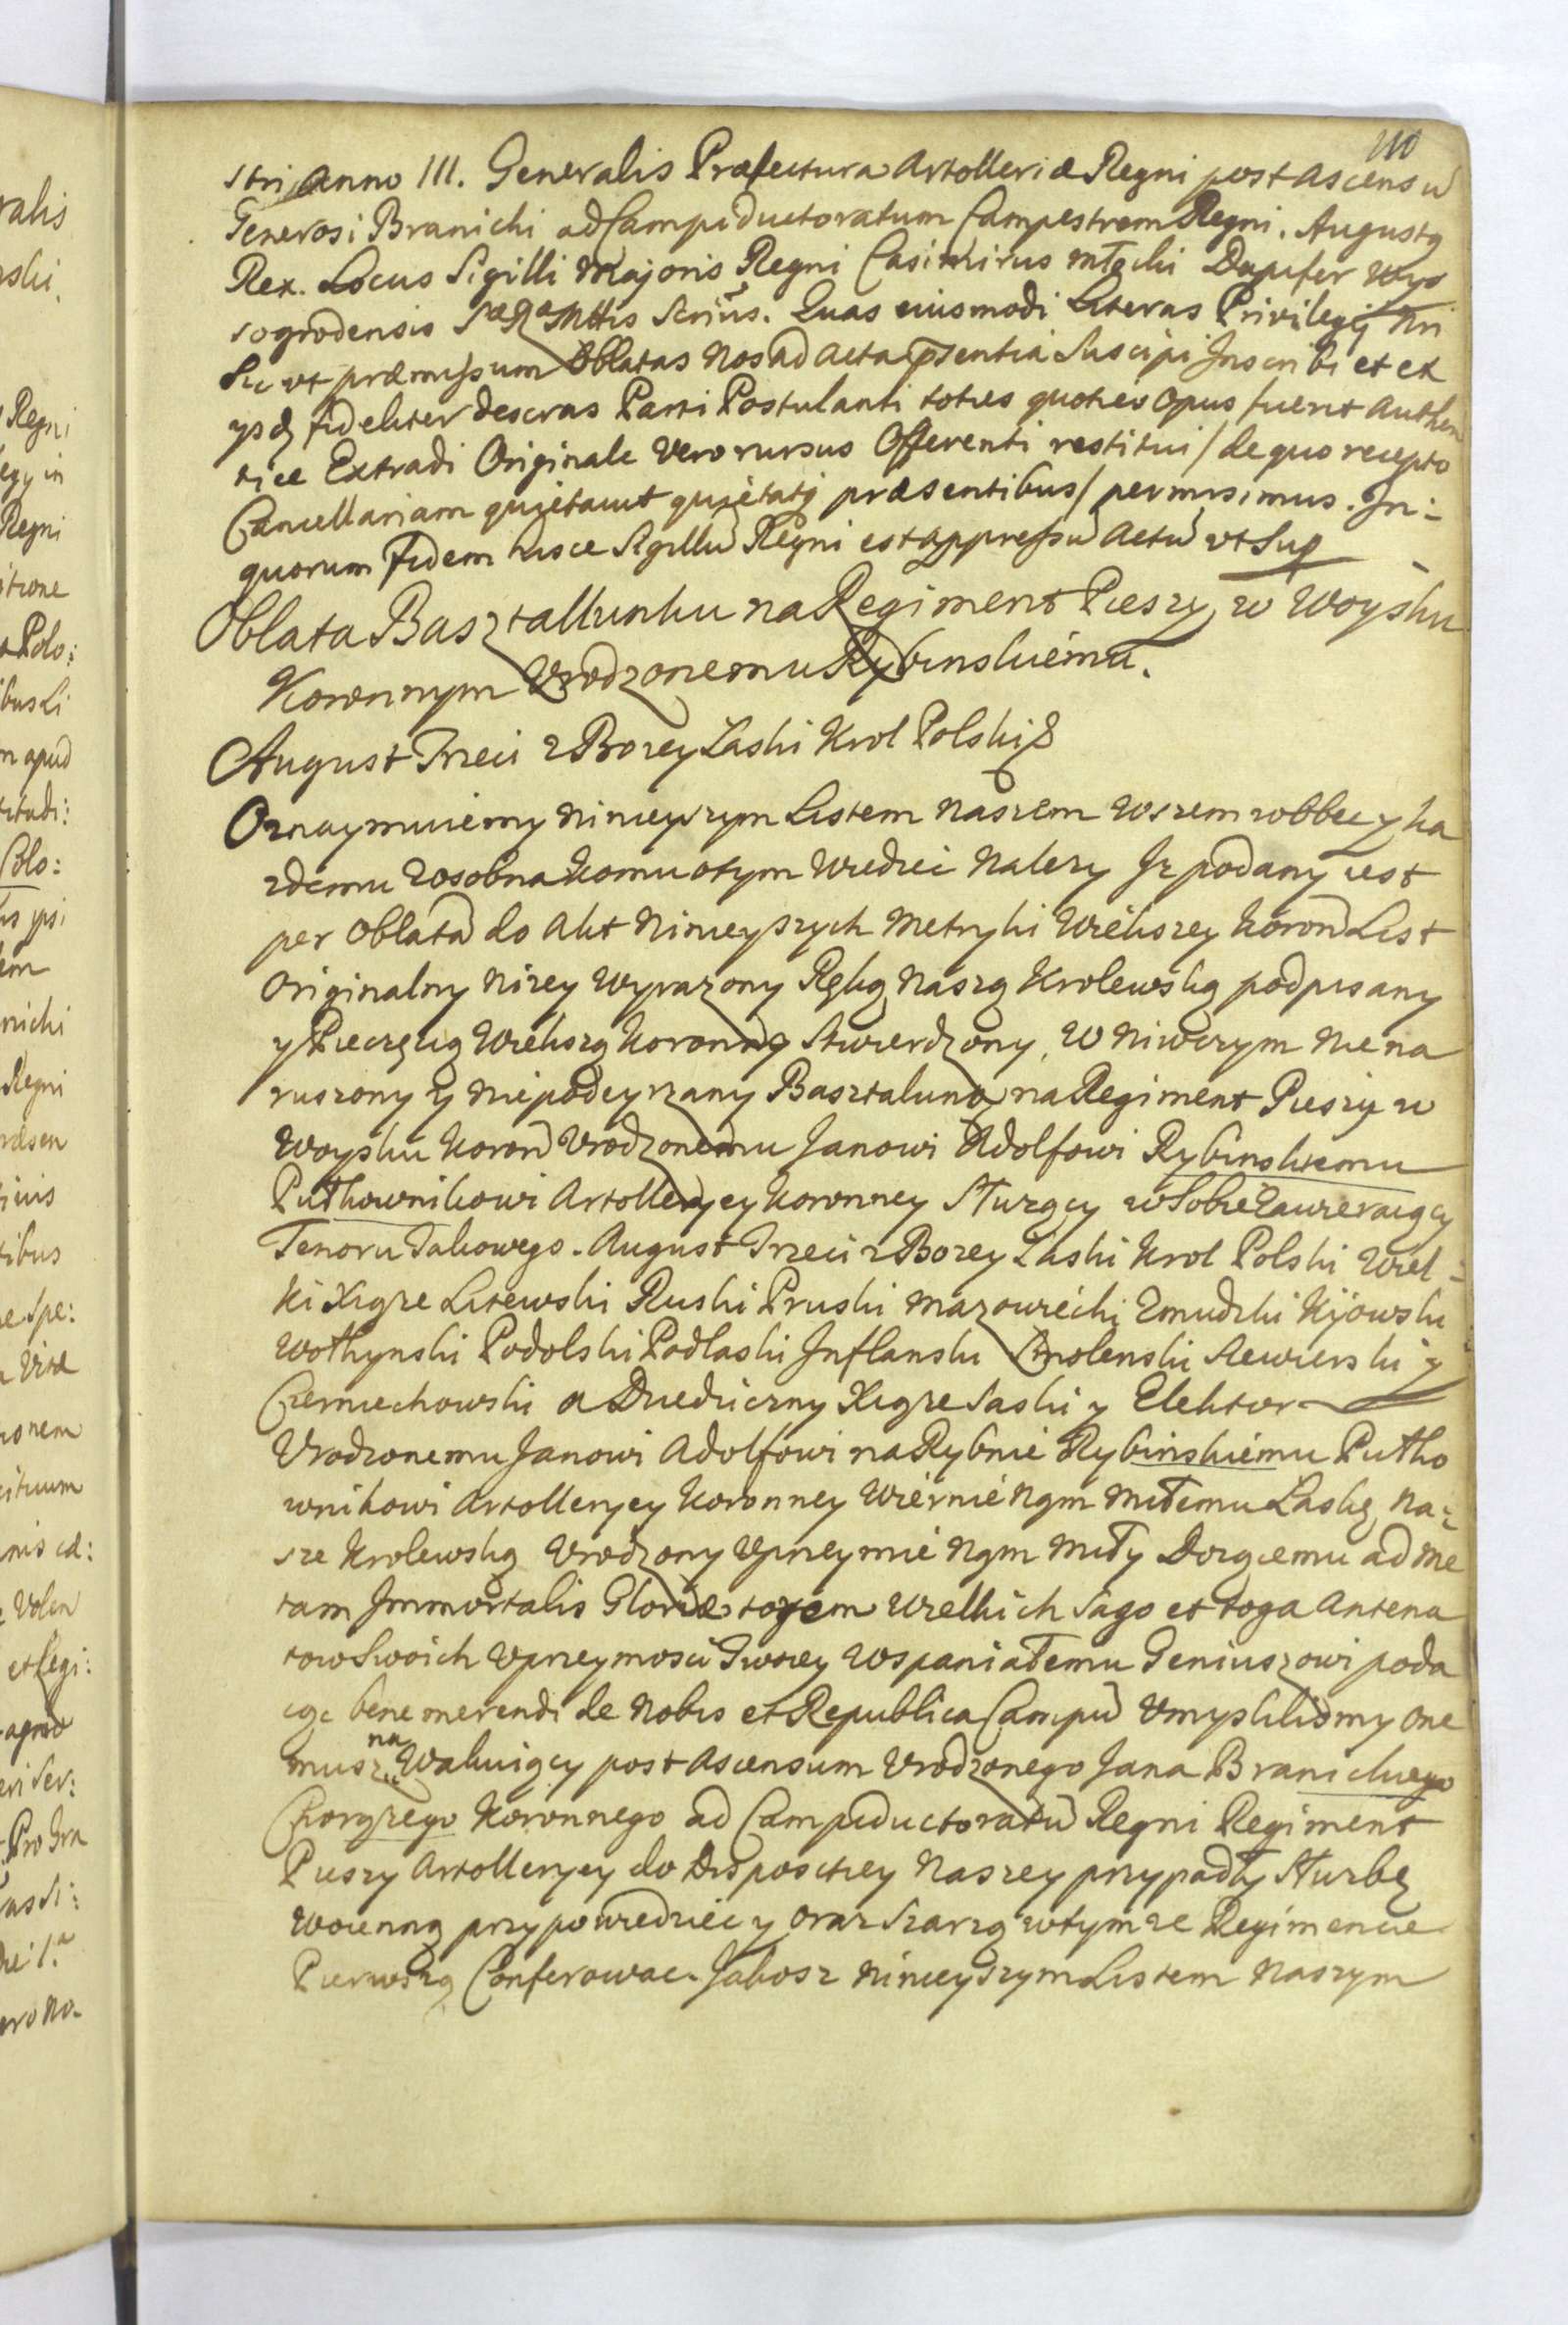 110
stri Anno III. Generalis Præfectura Artolleriæ Regni post ascensũ
Generosi Branicki ad Campiductoratum Campestrem Regni. Augustq
Rex. Locus Sigilli Majoris Regni Casimirus Młocki Dapifer Wys
sogrodensis Sæ Ræ Mttis Scrius. Quas eiusmodi Literas Privilegij Nri
Sic ut præmissum Oblatas Nos ad Acta psentia Suscipi Inscribi et ex
ysdq fideliter descras Parti Postulanti toties quoties Opus fuerit Authen
tice Extradi Originale Vero rursus Offerenti restitui / de quo recepto
Cancellariam quietavit quietatq præsentibus / permisimus. In:
quorum Fidem hisce Sigillũ Regni est appressũ Actũ vt Sup
Oblata Basztallunku na Regiment Pieszy, w Woysku
Koronnym Vrodzonemu Rybinskiemu.
August Trzeci z Bozey Łaski Krol Polski &
Oznaymuiemy Ninieyszym Listem Naszem Wszem wobbec y ka
zdemu Zosobna Komu otym Wiedziec Nalezy Jz podany iest
per Oblatã do Akt Ninieyszych Metryki Wiekszey Koroñ List
Originalny Nizey Wyrazony Ręką Naszą Krolewską podpisany
y Pieczęcią Wiekszą Koronną Stwierdzony, W Niwczym Nie na
ruszony y Niepodeyrzany Basztalung na Regiment Pieszy w
Woysku Koroñ Vrodzonemu Janowi Adolfowi Rybinskiemu
Pułkownikowi Artolleryey Koronney Słuzący w Sobie Zawieraiący
Tenoru Takowego. August Trzeci z Bozey Łaski Krol Polski Wiel:
ki Xiąze Litewski Ruski Pruski Mazowiecki Zmudzki Kijowski
Wołhynski Podolski Podlaski Inflanski Smolenski Siewierski y
Czerniechowski a Dziedziczny Xiąze Saski y Elektor
Vrodzonemu Janowi Adolfowi na Rybnie Rybinskiemu Pułko
wnikowi Artolleryey Koronney Wiernie Ngm Miłemu Łaskę Na:
sze Krolewską Vrodzony Vprzeymie Ngm Miły Dozącemu ad me
tam Immortalis Gloriæ torem Wielkich Sago et toga Antena
tow Swoich Vprzeymosci Twoiey Wspaniałemu Geniuszowi poda
iąc bene merendi de Nobis et Republica Campũ Vmyslilismy One
musz na Wakuiący post Ascensum Vrodzonego Jana Branickiego
Chorązego Koronnego ad Campiductoratũ Regni Regiment
Pieszy Artolleryey do Dispositiey Naszey przypadły Słuzbę
Woienną przypowiedziec y Oraz Szarzą wtymze Regimencie
Pierwszą Conferowac. Jakosz Ninieyszym Listem Naszym